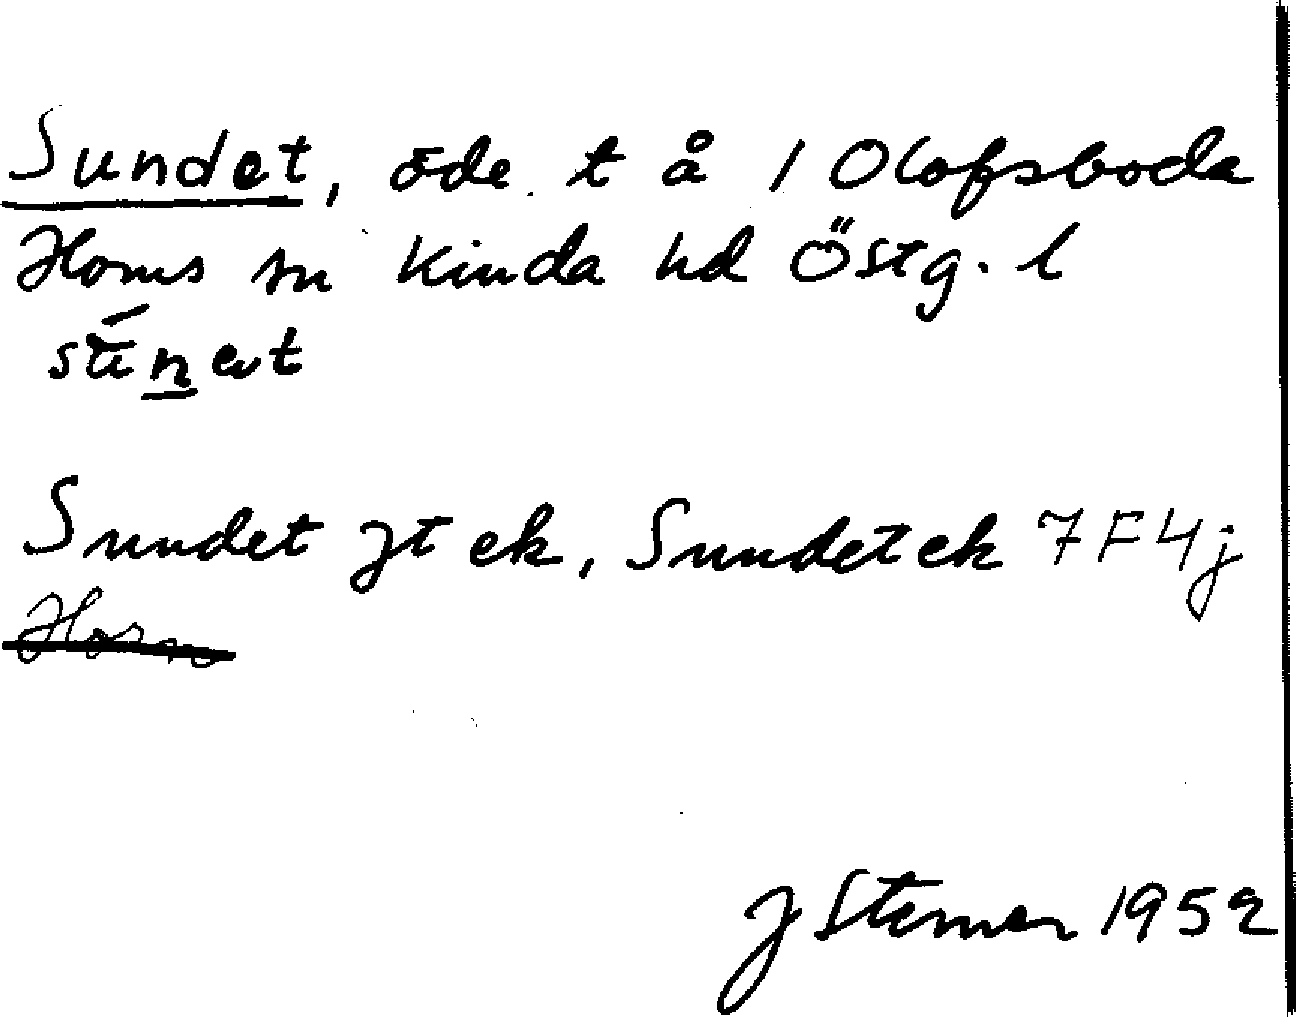 Sundet, öde t å 1 Olofsboda
Horns sn Kinda hd Östg. l
Sundet jt ek, Sundet ek 7F4j
Horn
J Sterner 1952